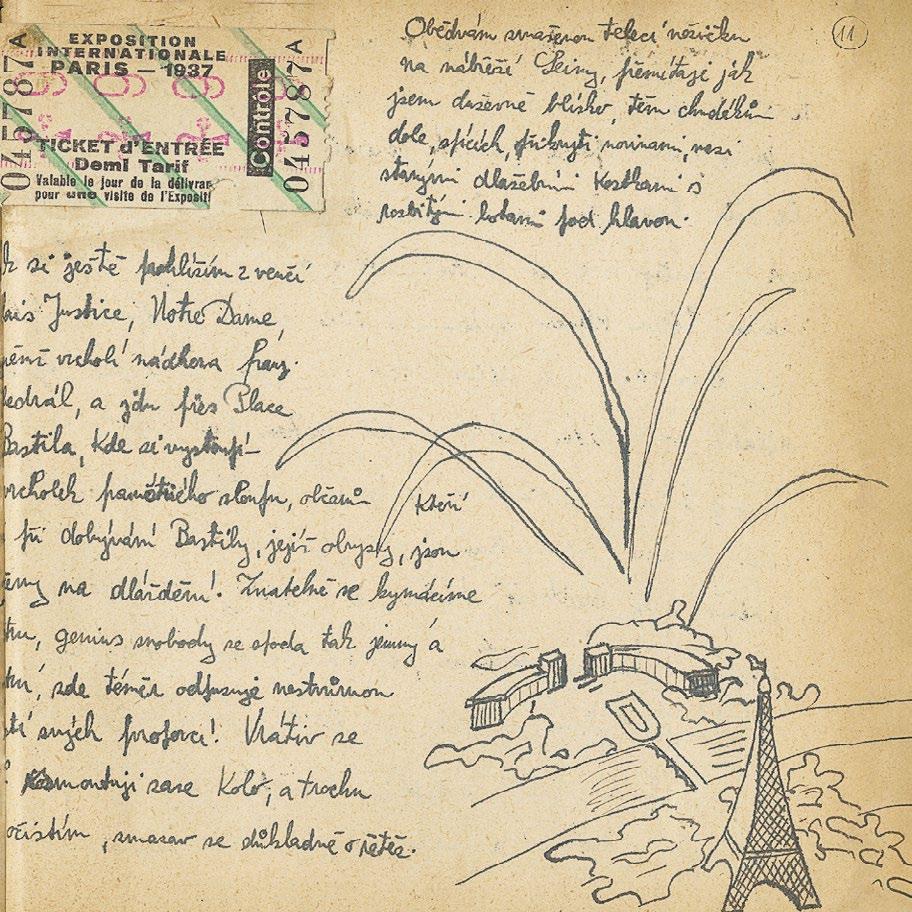 EXPOSITION
INTERNATIONALE
PARIS — 1937
TICKET d'ENTRÉE
Demi Tarif
Valable le jour de la délivran
pour une visite de l'Expositi
045787 A
Contrôle
045787 A
11
Obědvám smaženou telecí nožičku
na nábřeží Seiny, přemítaje jak
jsem duševně blízko, těm chudákům
dole, spících, přikryti novinami, mezi
starými dlažebními kostkami s
rozbitými botami pod hlavou.
k si ještě prohlížím z venčí
lais Justice, Notre Dame,
vrcholí nádhera franz.
tedrál, a jdu přes Place
Bastila, kde si vystoupí-
vrcholek pamětního sloupu, občanům kteří
při dobývání Bastily, jejíž obrysy, jsou
čeny na dláždění. Znatelně se kymácíme
tru, genius svobody se zpoda tak jemný a
ký, zde téměř odpuzuje nestvůrnou
stí svých proporcí! Vrátiv se
rozmontuji zase kolo, a trochu
očistím, smazav se důkladně o řetěz.